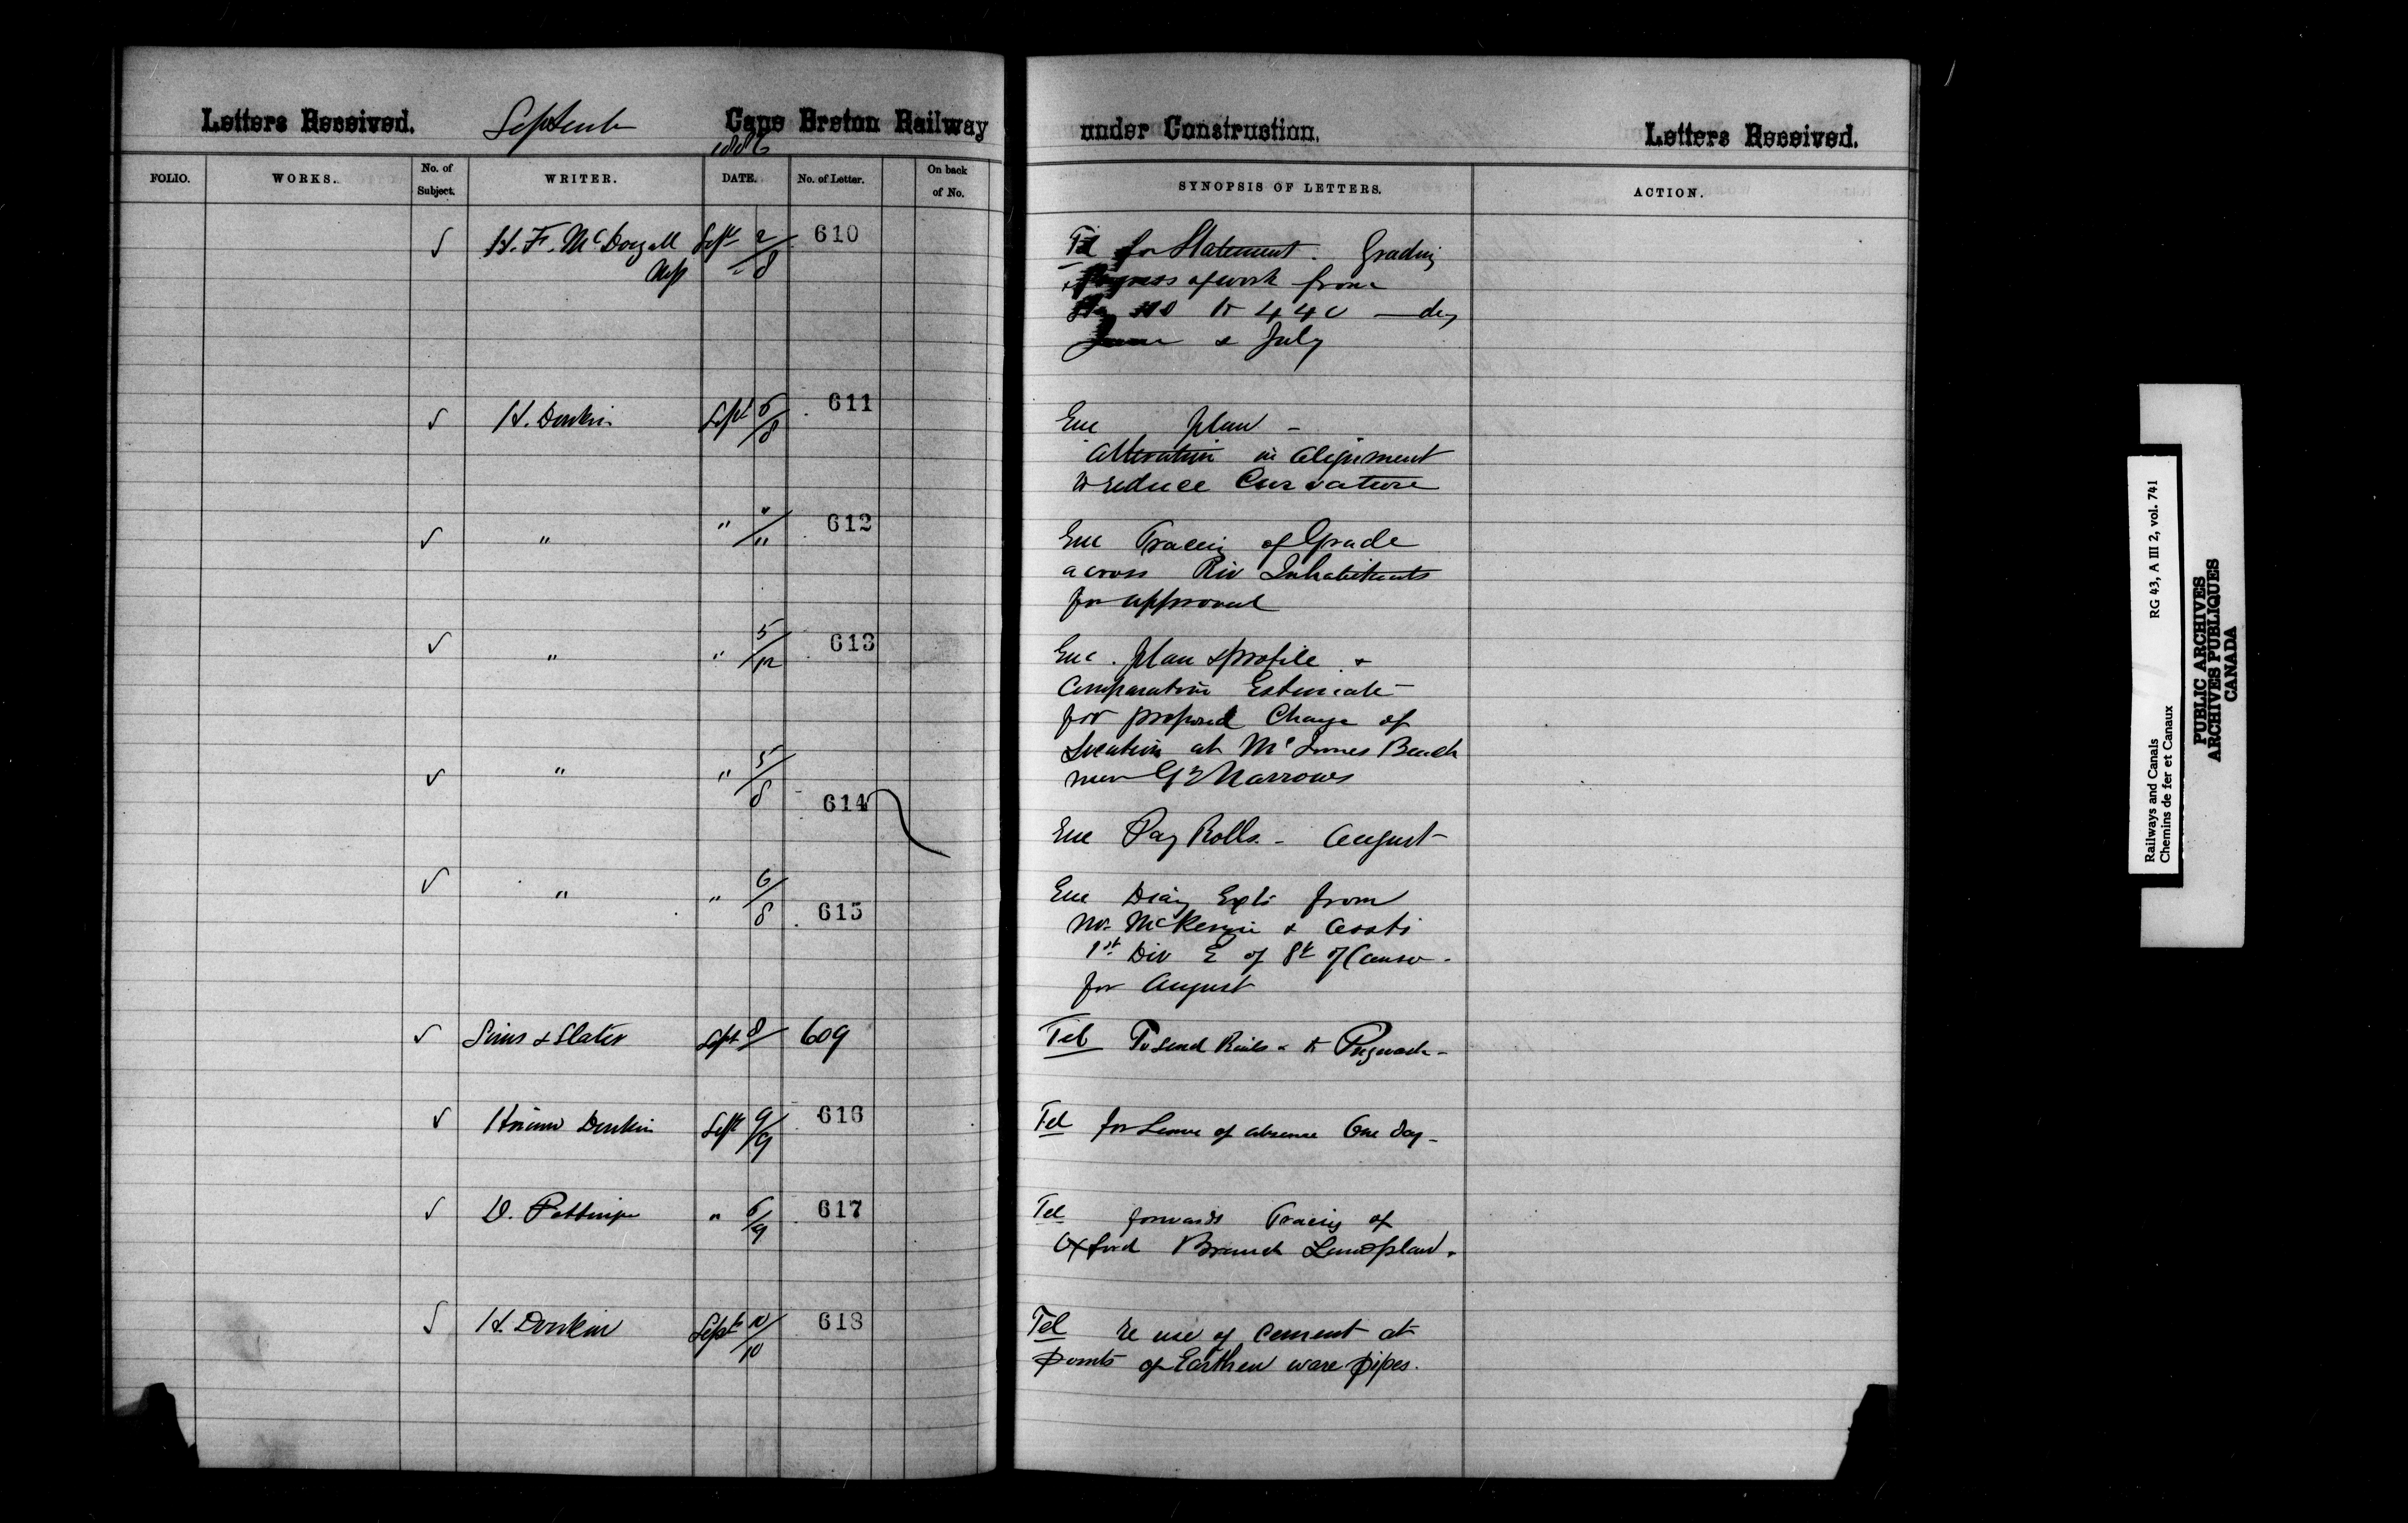 Letters Received. September Cape Breton Railway
1886
FOLIO. WORKS. No. of Subject. WRITER. DATE. No. of Letter. On back of No.
√ H. F. McDougall Sept 2/8 610
MP
√ H. Donkin Sept 5/8 611
√ " " "/" 612
√ " " 5/12 613
√ " " 5/8 614
√ " " 6/8 615
√ Sims & Slater Sept 8/ 609
√ Hiram Donkin Sept 9/9 616
√ D. Pottinger " 6/9 617
√ H. Donkin Sept 10/10 618
under Construction. Letters Received.
SYNOPSIS OF LETTERS. ACTION.
Tel for Statement. Grading
progress of work from
to 440
June & July
Enc plan -
Alteration in alignment
to reduce Curvature
Enc Tracing of Grade
across Riv Inhabitants
for approval
Enc. plan & profile &
Comparative Estimate
for proposed Change of
Location at McInnes Beach
near Gd Narrows
Enc Pay Rolls - August
Enc Diary from
McKenzie & Assts
1st Div E of St of Canso -
for August
Tel To send Rails & to Pugwash -
Tel for Leave of absence One day -
Tel forwards Tracing of
Oxford Branch Land plan.
Tel re use of cement at
points of Earthen ware pipes.
Railways and Canals RG 43, A III 2, vol. 741
Chemins de fer et Canaux
PUBLIC ARCHIVES
ARCHIVES PUBLIQUES
CANADA